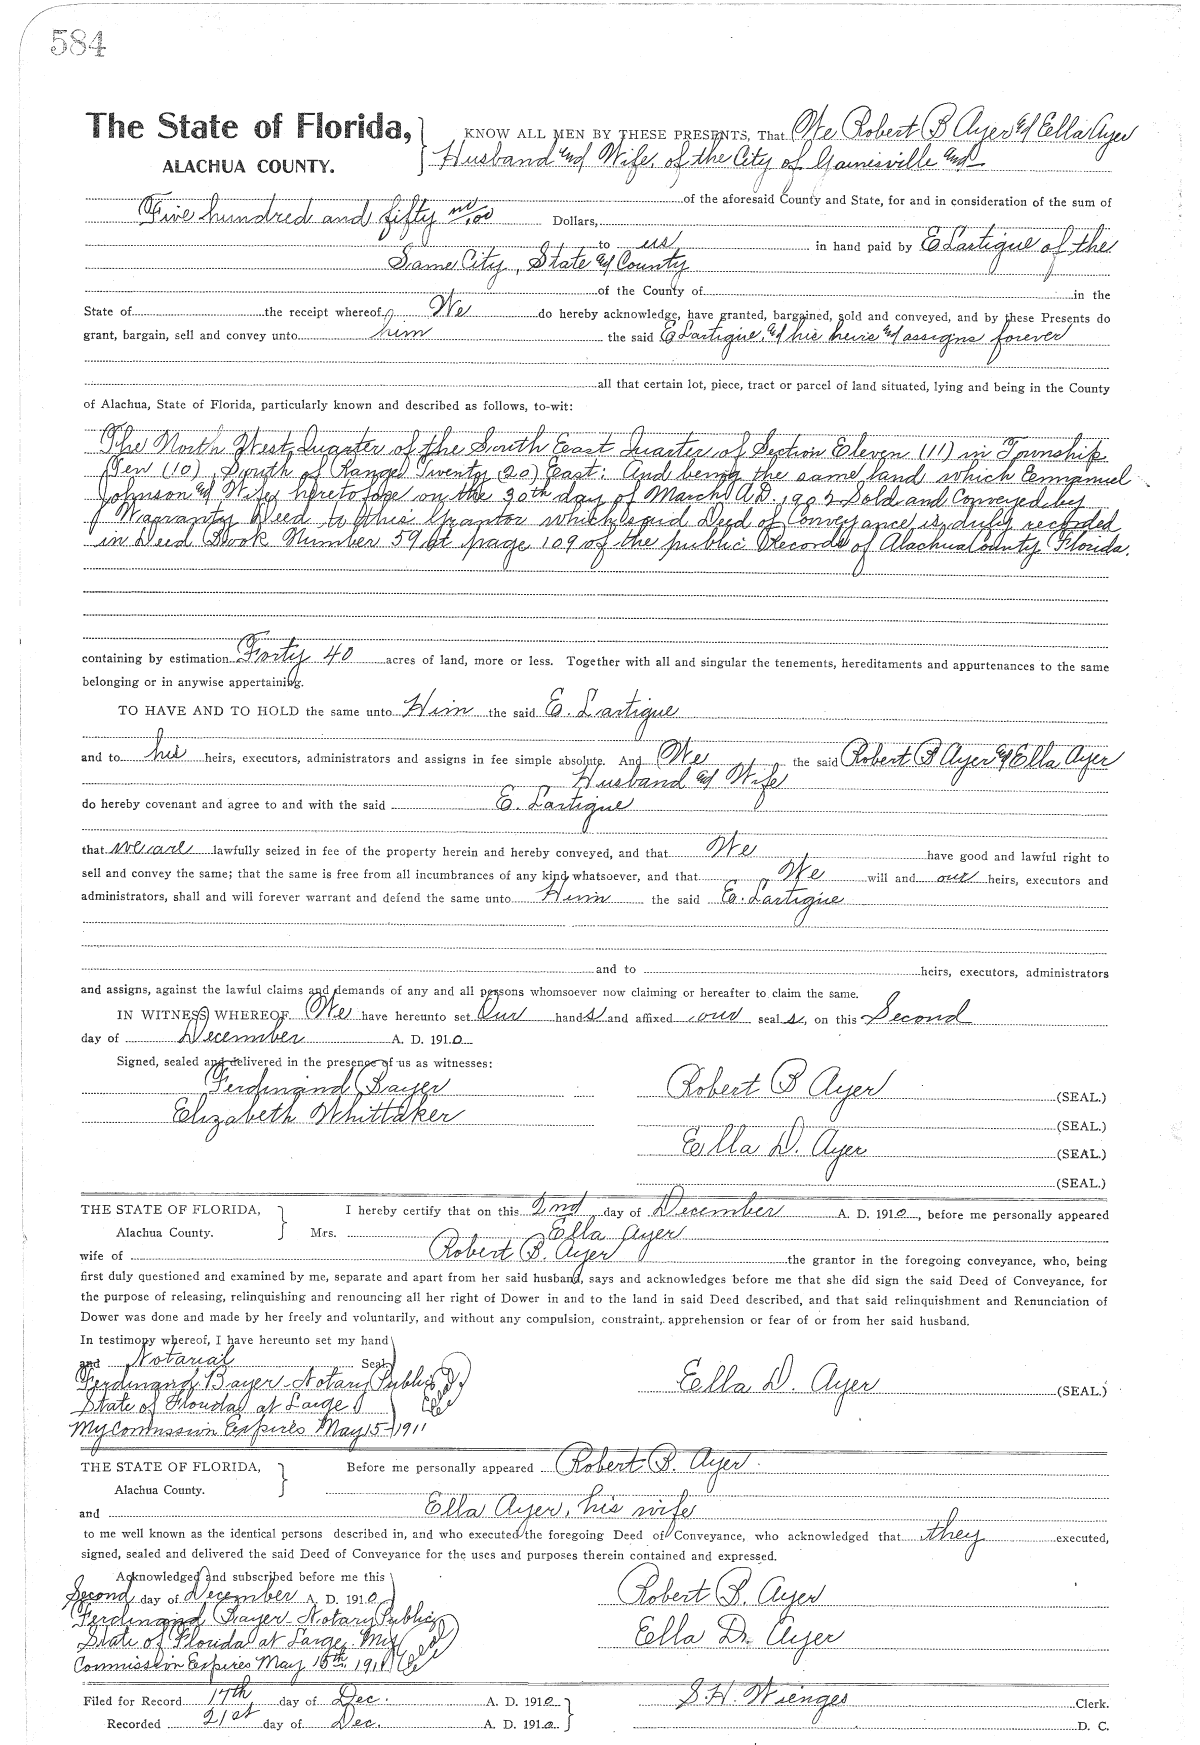 584
The State of Florida, } KNOW ALL MEN BY THESE PRESENTS, That We Robert B Ayer and Ella Ayer
ALACHUA COUNTY. Husband and Wife, of the City of Gainesville and
of the aforesaid County and State, for and in consideration of the sum of
Five hundred and fifty no/100 Dollars,
to us in hand paid by E Lartigue of the
Same City, State and County
of the County of in the
State of the receipt whereof We do hereby acknowledge, have granted, bargained, sold and conveyed, and by these Presents do
grant, bargain, sell and convey unto him the said E Lartigue, and his heirs and assigns forever
all that certain lot, piece, tract or parcel of land situated, lying and being in the County
of Alachua, State of Florida, particularly known and described as follows, to-wit:
The North West Quarter of the South East Quarter of Section Eleven (11) in Township
Ten (10), South of Range Twenty (20) East: And being the same land which Emmanuel
Johnson and Wife heretofore on the 30th day of March A.D. 1902 Sold and Conveyed by
Warranty Deed to this Grantor which said Deed of Conveyance is duly recorded
in Deed Book Number 59 at page 109 of the public Records of Alachua County Florida.
containing by estimation Forty 40 acres of land, more or less. Together with all and singular the tenements, hereditaments and appurtenances to the same
belonging or in anywise appertaining.
TO HAVE AND TO HOLD the same unto Him the said E. Lartigue
and to his heirs, executors, administrators and assigns in fee simple absolute. And We the said Robert B Ayer and Ella Ayer
Husband and Wife
do hereby covenant and agree to and with the said E. Lartigue
that we are lawfully seized in fee of the property herein and hereby conveyed, and that We have good and lawful right to
sell and convey the same; that the same is free from all incumbrances of any kind whatsoever, and that We will and our heirs, executors and
administrators, shall and will forever warrant and defend the same unto Him the said E. Lartigue
and to heirs, executors, administrators
and assigns, against the lawful claims and demands of any and all persons whomsoever now claiming or hereafter to claim the same.
IN WITNESS WHEREOF, We have hereunto set Our hands and affixed our seals, on this Second
day of December A. D. 1910
Signed, sealed and delivered in the presence of us as witnesses:
Ferdinand Bayer Robert B Ayer (SEAL.)
Elizabeth Whittaker (SEAL.)
Ella D. Ayer (SEAL.)
(SEAL.)
THE STATE OF FLORIDA, } I hereby certify that on this 2nd day of December A. D. 1910, before me personally appeared
Alachua County. Mrs. Ella Ayer
wife of Robert B. Ayer the grantor in the foregoing conveyance, who, being
first duly questioned and examined by me, separate and apart from her said husband, says and acknowledges before me that she did sign the said Deed of Conveyance, for
the purpose of releasing, relinquishing and renouncing all her right of Dower in and to the land in said Deed described, and that said relinquishment and Renunciation of
Dower was done and made by her freely and voluntarily, and without any compulsion, constraint, apprehension or fear of or from her said husband.
In testimony whereof, I have hereunto set my hand
and Notarial Seal
Ferdinand Bayer - Notary Public Ella D. Ayer (SEAL.)
State of Florida at Large
My Commission Expires May 15-1911
THE STATE OF FLORIDA, } Before me personally appeared Robert B. Ayer
Alachua County.
and Ella Ayer, his wife
to me well known as the identical persons described in, and who executed the foregoing Deed of Conveyance, who acknowledged that they executed,
signed, sealed and delivered the said Deed of Conveyance for the uses and purposes therein contained and expressed.
Acknowledged and subscribed before me this
Second day of December A. D. 1910 Robert B. Ayer
Ferdinand Bayer - Notary Public
State of Florida at Large. My Seal Ella D. Ayer
Commission Expires May 15th, 1911
Filed for Record 17th day of Dec. A. D. 1910 } S. H. Wienges Clerk.
Recorded 21st day of Dec. A. D. 1910 D. C.